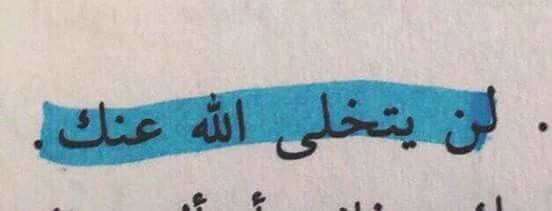 . لن يتخلى الله عنك.